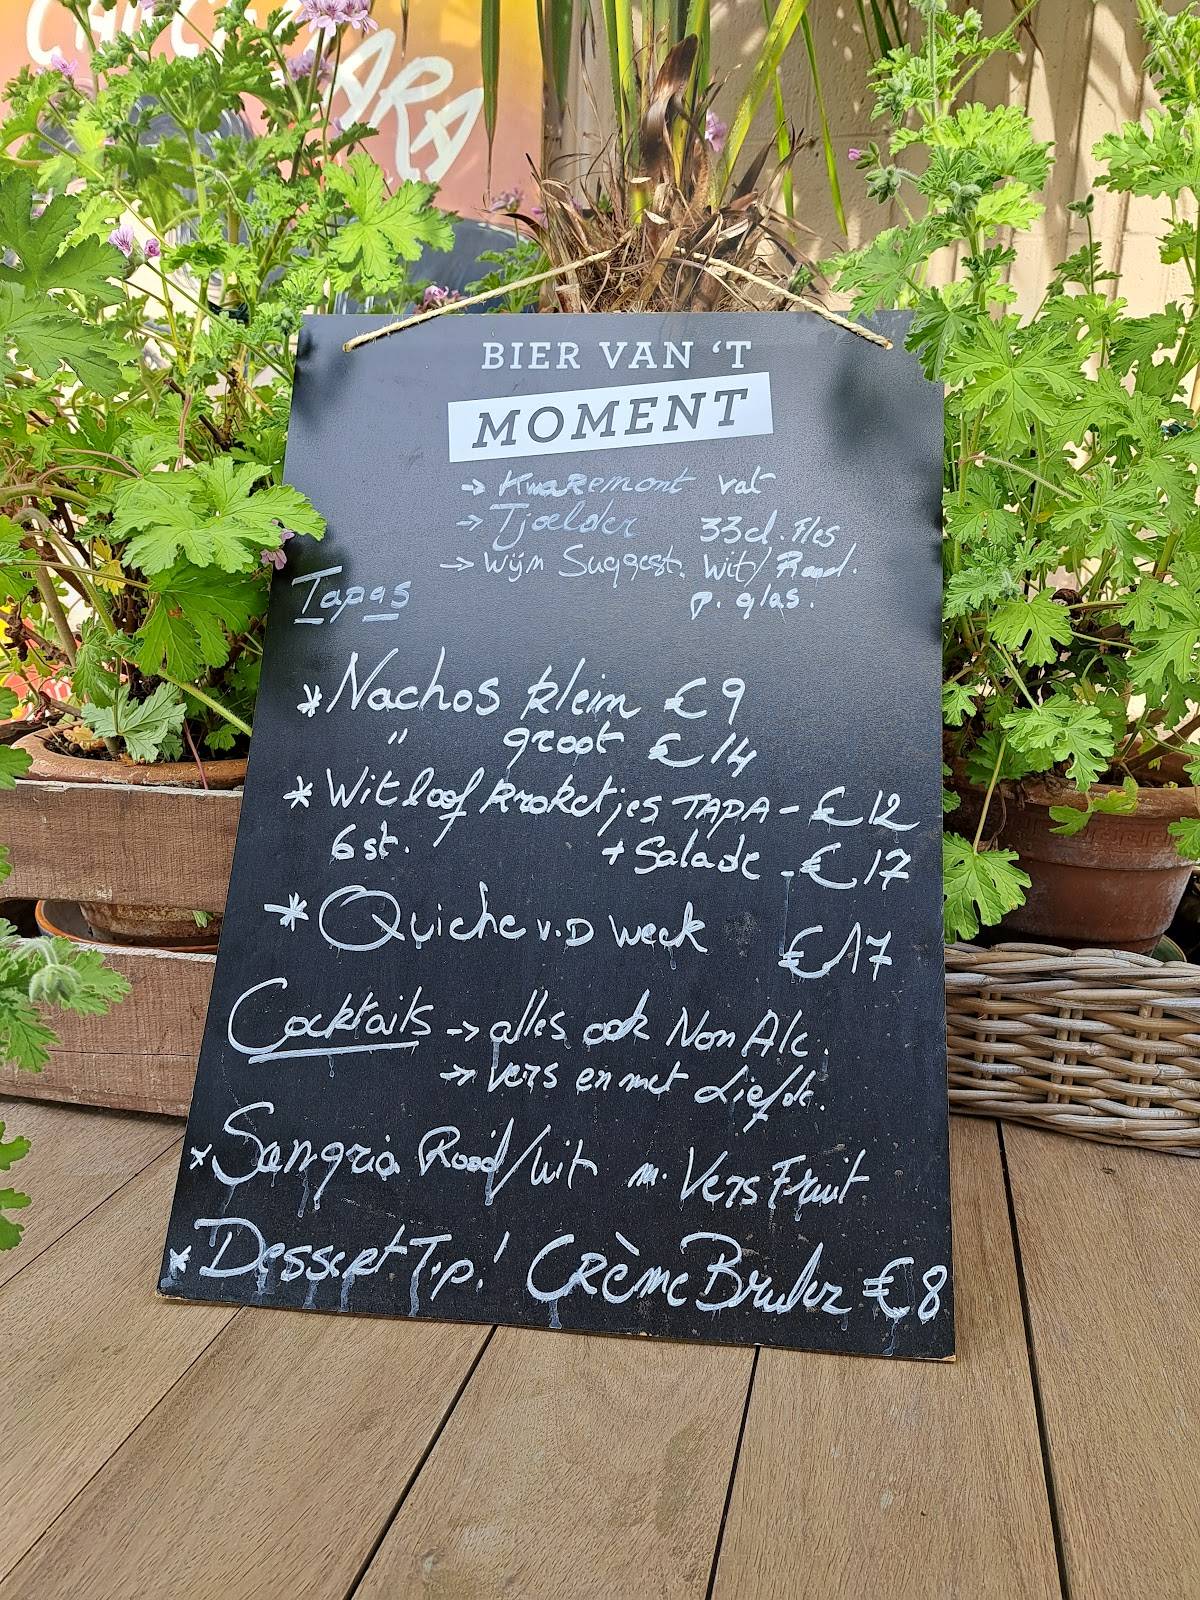 ARA
BIER VAN 'T
MOMENT
→ Kwaremont vat
→ Tjoelder 33cl. Fles
→ Wijn Suggest. Wit/Rood.
p. glas.
Tapas
* Nachos klein €9
" groot €14
* Witloof kroketjes TAPA - €12
6 st. + Salade - €17
* Quiche v.D week €17
Cocktails → alles ook Non Alc.
→ vers en met Liefde.
* Sangria Rood/wit m. Vers Fruit
* Dessert Tip! Crème Brulez €8